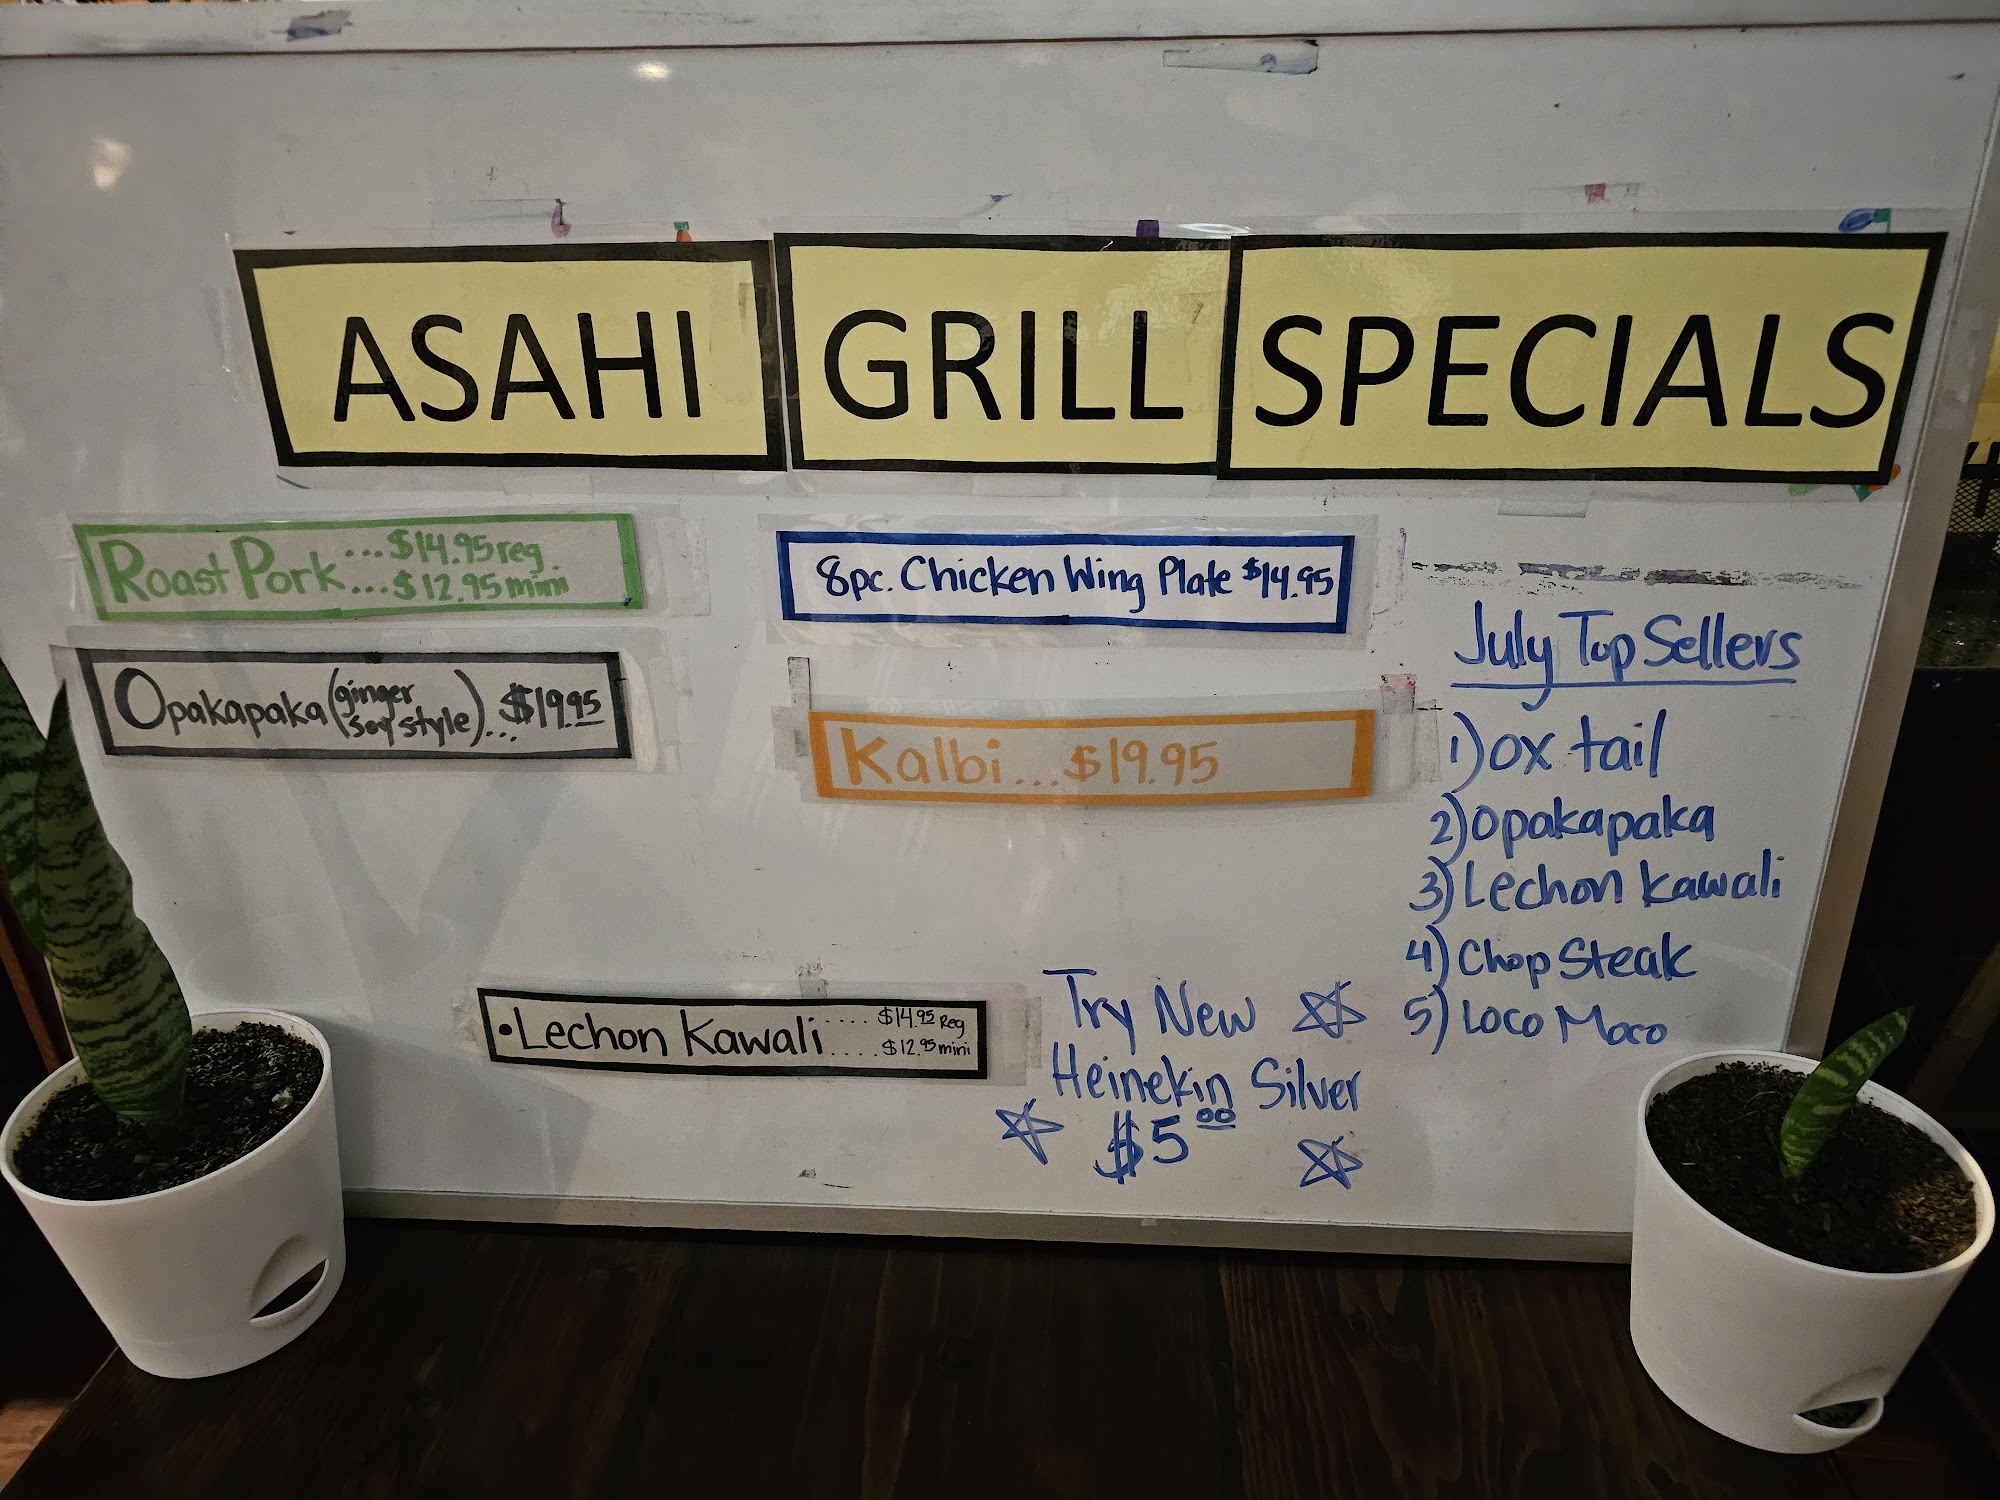 ASAHI GRILL SPECIALS
Roast Pork ... $14.95 reg.
... $12.95 mini
Opakapaka (ginger soy style) ... $19.95
8pc. Chicken Wing Plate $14.95
Kalbi ... $19.95
• Lechon Kawali .... $14.95 Reg
.... $12.95 mini
Try New
Heinekin Silver
$5.00
July Top Sellers
1) Ox tail
2) Opakapaka
3) Lechon Kawali
4) Chop Steak
5) Loco Moco